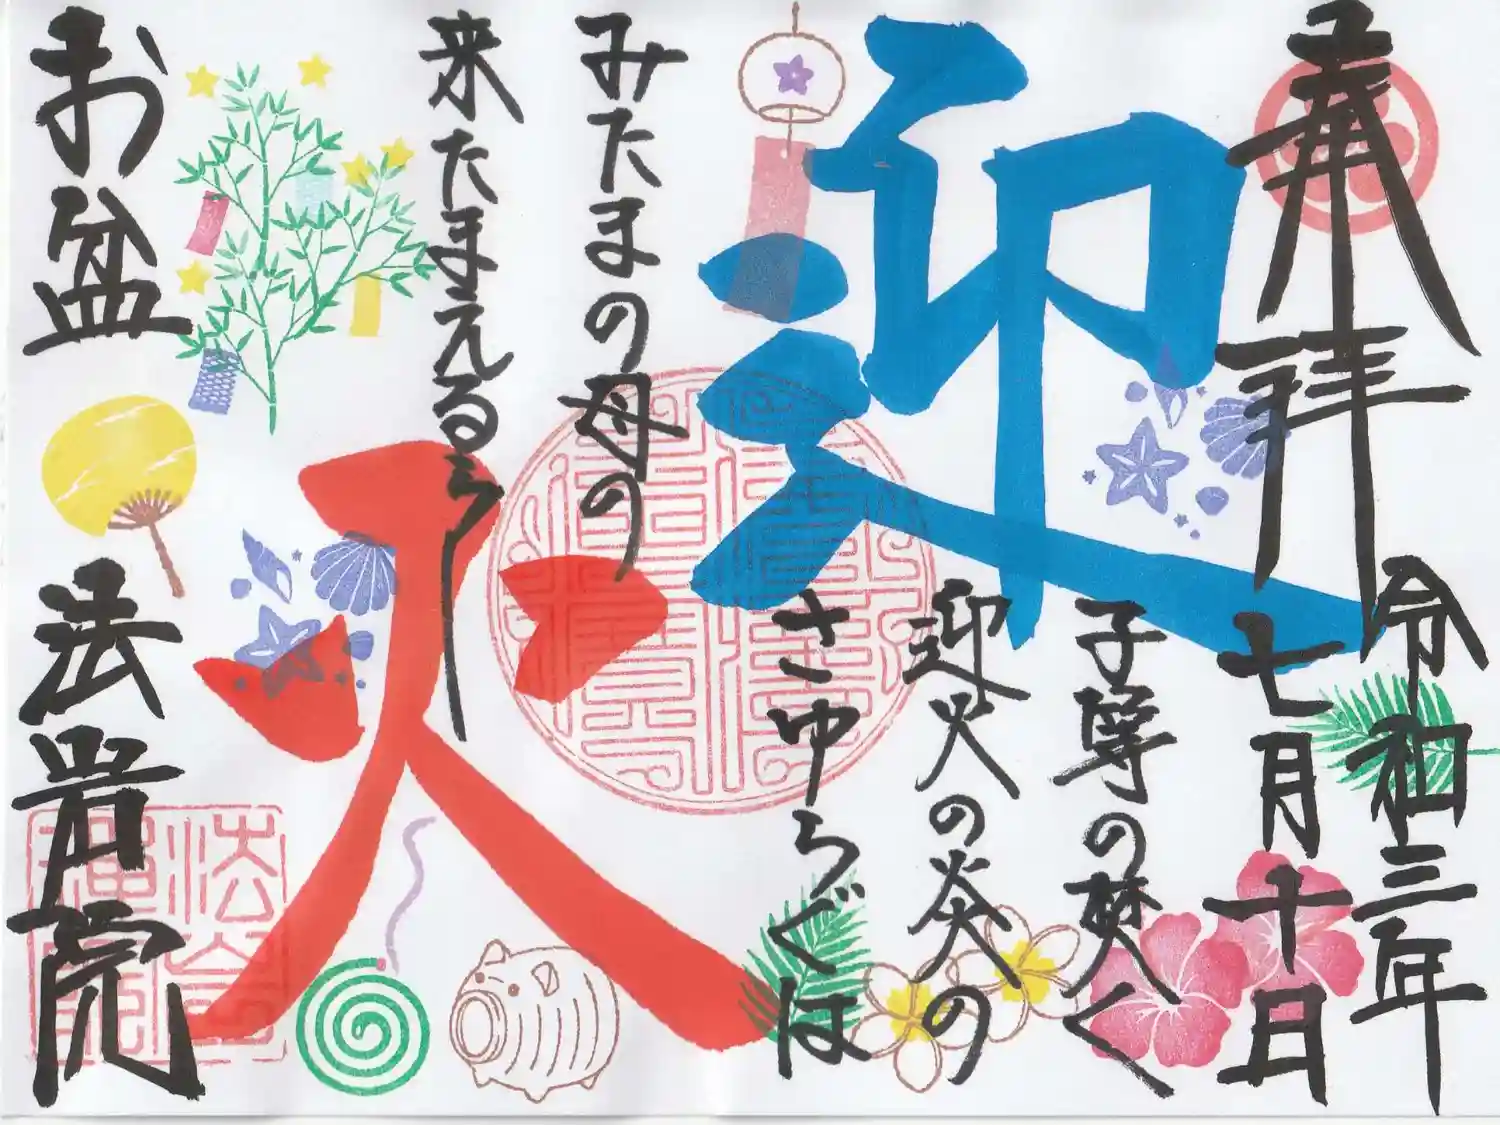 奉拝
令和三年
七月十日
迎火
子孳の焚く
迎火の炎の
さゆらぐは
みたまの母の
来たまえるらし
お盆
法岩院